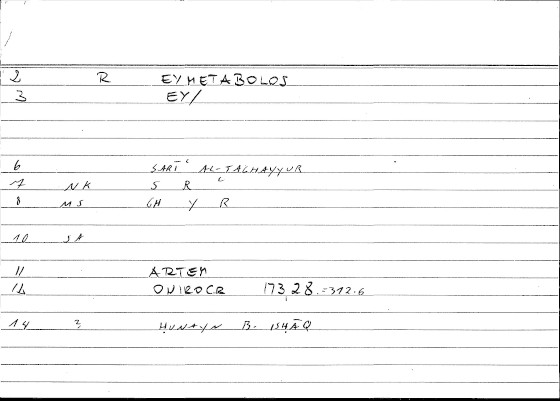 2 R EYMETABOLOS
3 EY/
6 SARĪʿ AL-TAGHAYYUR
7 NK S R ʿ
8 MS GH Y R
10 SA
11 ARTEM
12 ONIROCR 173,28.=312.6
14 3 ḤUNAYN B. ISḤĀQ